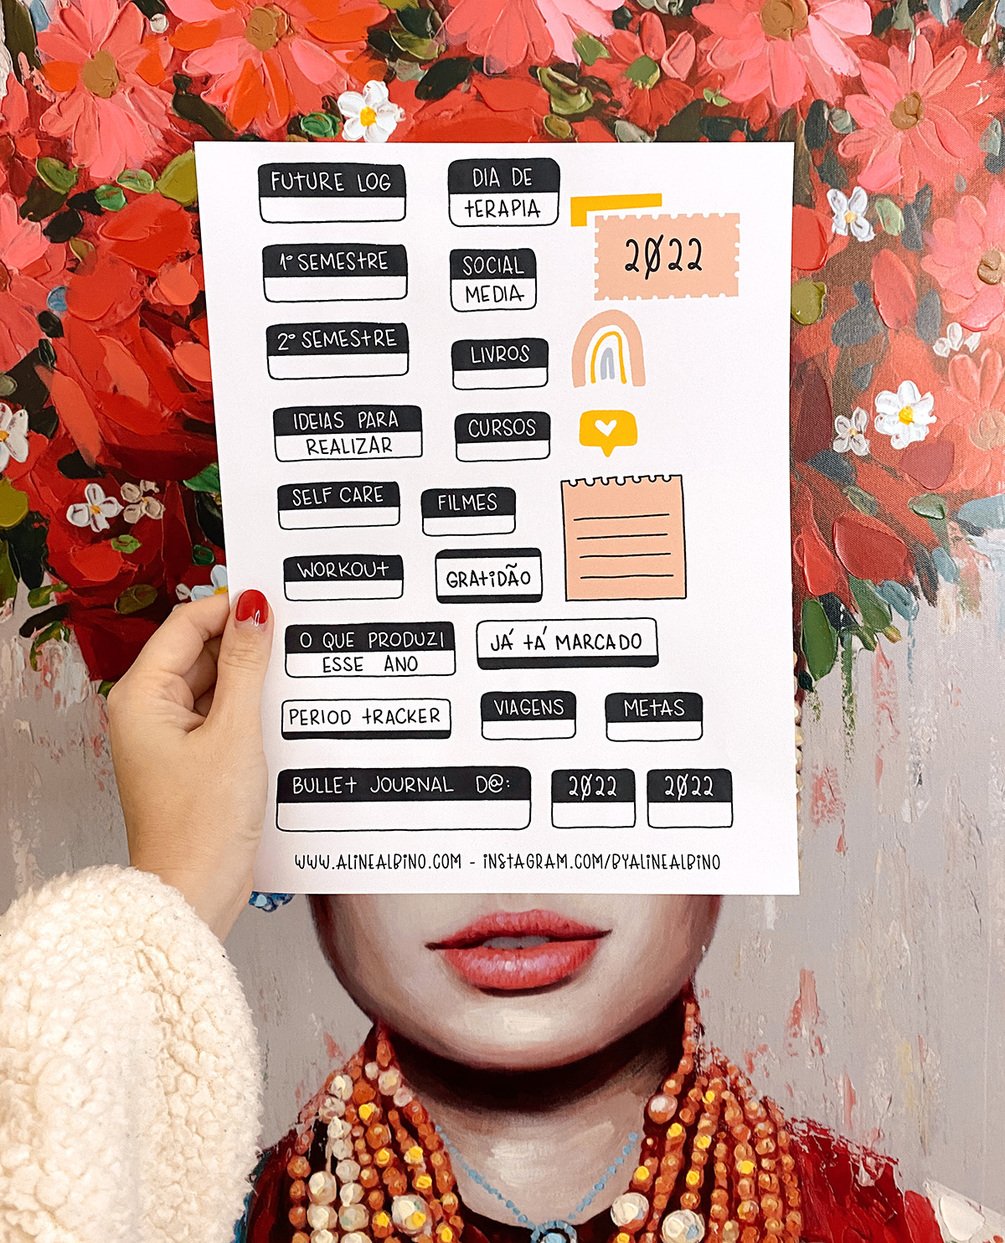 FUTURE LOG
DIA DE
TERAPIA
2022
1º SEMESTRE
SOCIAL
MEDIA
2º SEMESTRE
LIVROS
IDEIAS PARA
REALIZAR
CURSOS
SELF CARE
FILMES
WORKOUT
GRATIDÃO
O QUE PRODUZI
ESSE ANO
JÁ TÁ MARCADO
PERIOD TRACKER
VIAGENS
METAS
BULLET JOURNAL D@:
2022
2022
WWW.ALINEALBINO.COM - INSTAGRAM.COM/BYALINEALBINO